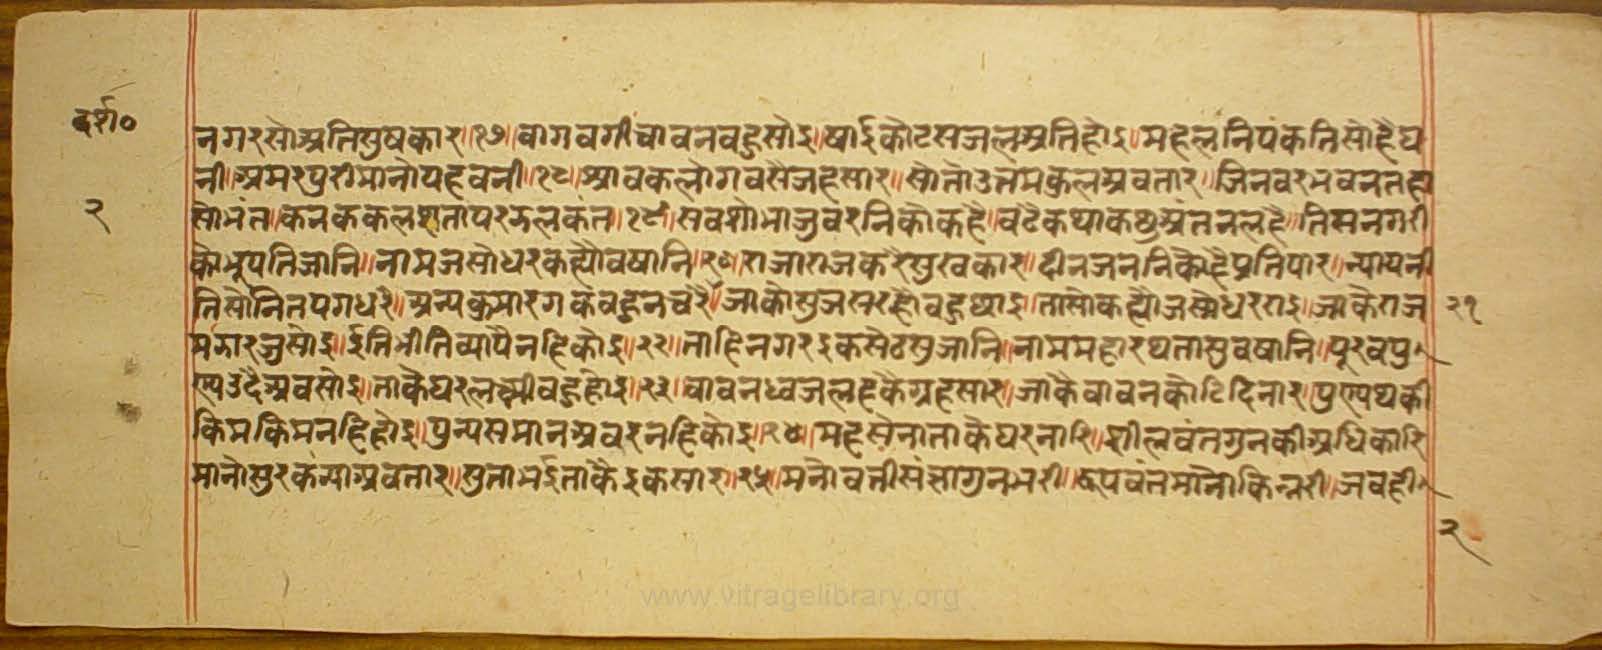 दर्श०
नगरसोअतिसुषकार॥१७॥वागवगीचावनवहुसोइ॥षाईकोटसजलअतिहोइ॥महेलनिपंकतिसोहैघ
नी॥अमरपुरीमानोयहवनी॥१८॥श्रावकलोगवसैजहसार॥सोतोउतमकुलअवतार॥जिनवरभवनतहा
२
सोभंत॥कनककलशतापरझलकंत॥१९॥सवशोभाजुवरनिकोकहै॥वढैकथाकछुअंतनलहै॥तिसनगरी
कोभूपतिजानि॥नामजसोधरकह्यौवषानि॥२०॥राजाराजकरैसुखकार॥दीनजननिकोहैप्रतिपार॥न्यायनी
तिसोनितपगधरै॥अन्यकुमारगकवहुनचरै॥जाकोसुजसरहोवहुछाइ॥तासोकह्यौजसोधरराइ॥जाकैराज
२१
मझारजुसोइ॥ईतिभीतिव्यापैनहिकोइ॥२२॥ताहिनगरइकसेठसुजानि॥नाममहारथतासुवषानि॥पूरवपु
ण्यउदैअवसोइ॥ताकैघरलक्ष्मीवहुहोइ॥२३॥वावनध्वजलहकैग्रहसार॥जाकैवावनकोटिदिनार॥पुण्यथकी
किमकिमनहिहोइ॥पुन्यसमानअवरनहिकोइ॥२४॥महसेनाताकैघरनारि॥शीलवंतगुनकीअधिकारि
मानोसुरकंन्याअवतार॥सुताभईताकैइकसार॥२५॥मनोवतीसंज्ञागुनभरी॥रूपवंतमानोकिन्नरी॥जवही
२
www.vitragelibrary.org